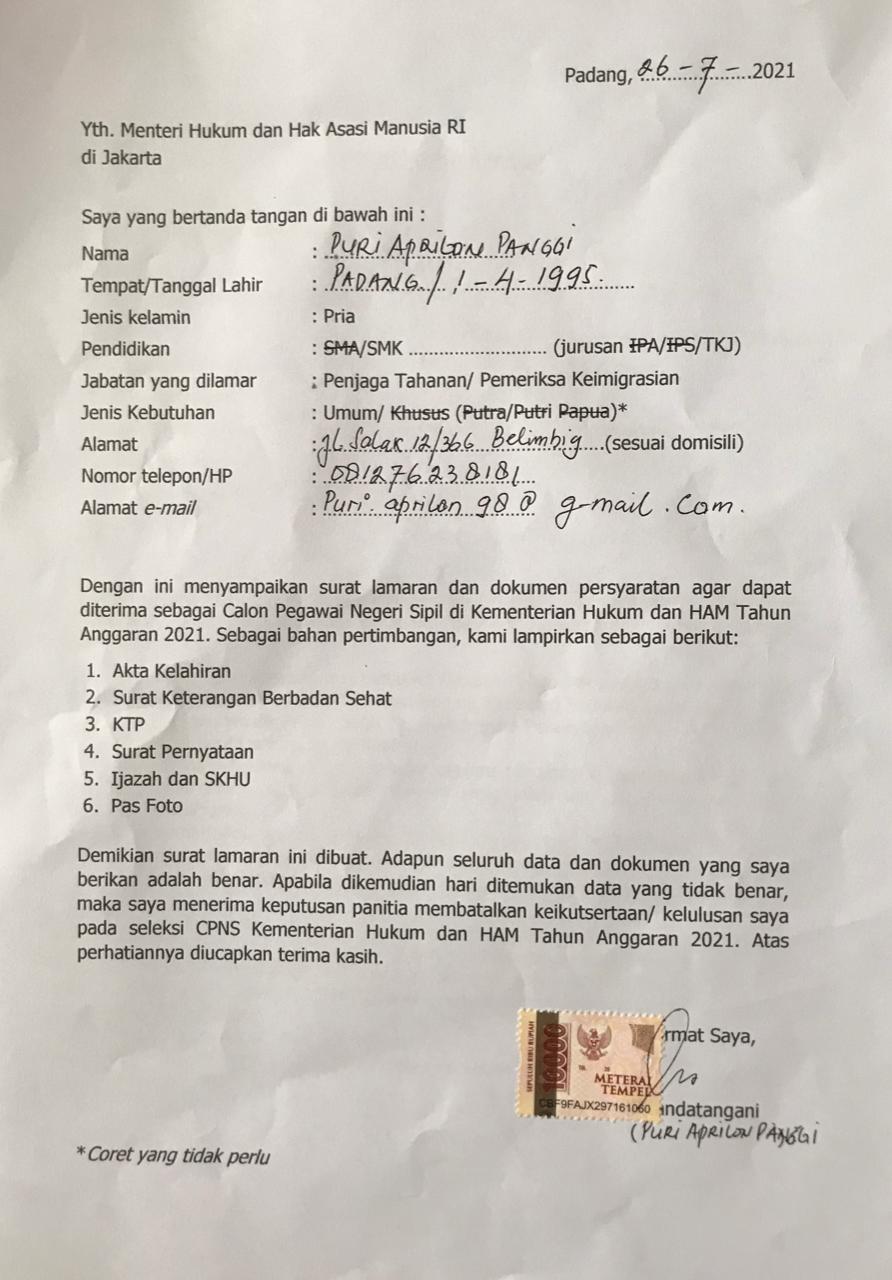 Padang, 26-7-2021
Yth. Menteri Hukum dan Hak Asasi Manusia RI
di Jakarta
Saya yang bertanda tangan di bawah ini :
Nama : PURI APRILON PANGGI
Tempat/Tanggal Lahir : PADANG / 1-4-1995
Jenis kelamin : Pria
Pendidikan : SMA/SMK ........................... (jurusan IPA/IPS/TKJ)
Jabatan yang dilamar : Penjaga Tahanan/ Pemeriksa Keimigrasian
Jenis Kebutuhan : Umum/ Khusus (Putra/Putri Papua)*
Alamat : JL. Solak 12/366 Belimbig....(sesuai domisili)
Nomor telepon/HP : 081276238181
Alamat e-mail : Puri. aprilon 98 @ g-mail . Com .
Dengan ini menyampaikan surat lamaran dan dokumen persyaratan agar dapat
diterima sebagai Calon Pegawai Negeri Sipil di Kementerian Hukum dan HAM Tahun
Anggaran 2021. Sebagai bahan pertimbangan, kami lampirkan sebagai berikut:
1. Akta Kelahiran
2. Surat Keterangan Berbadan Sehat
3. KTP
4. Surat Pernyataan
5. Ijazah dan SKHU
6. Pas Foto
Demikian surat lamaran ini dibuat. Adapun seluruh data dan dokumen yang saya
berikan adalah benar. Apabila dikemudian hari ditemukan data yang tidak benar,
maka saya menerima keputusan panitia membatalkan keikutsertaan/ kelulusan saya
pada seleksi CPNS Kementerian Hukum dan HAM Tahun Anggaran 2021. Atas
perhatiannya diucapkan terima kasih.
rmat Saya,
SEPULUH RIBU RUPIAH
10000
METERAI
TEMPEL
F9FAJX297161060
indatangani
(PURI APRILON PANGGI
*Coret yang tidak perlu